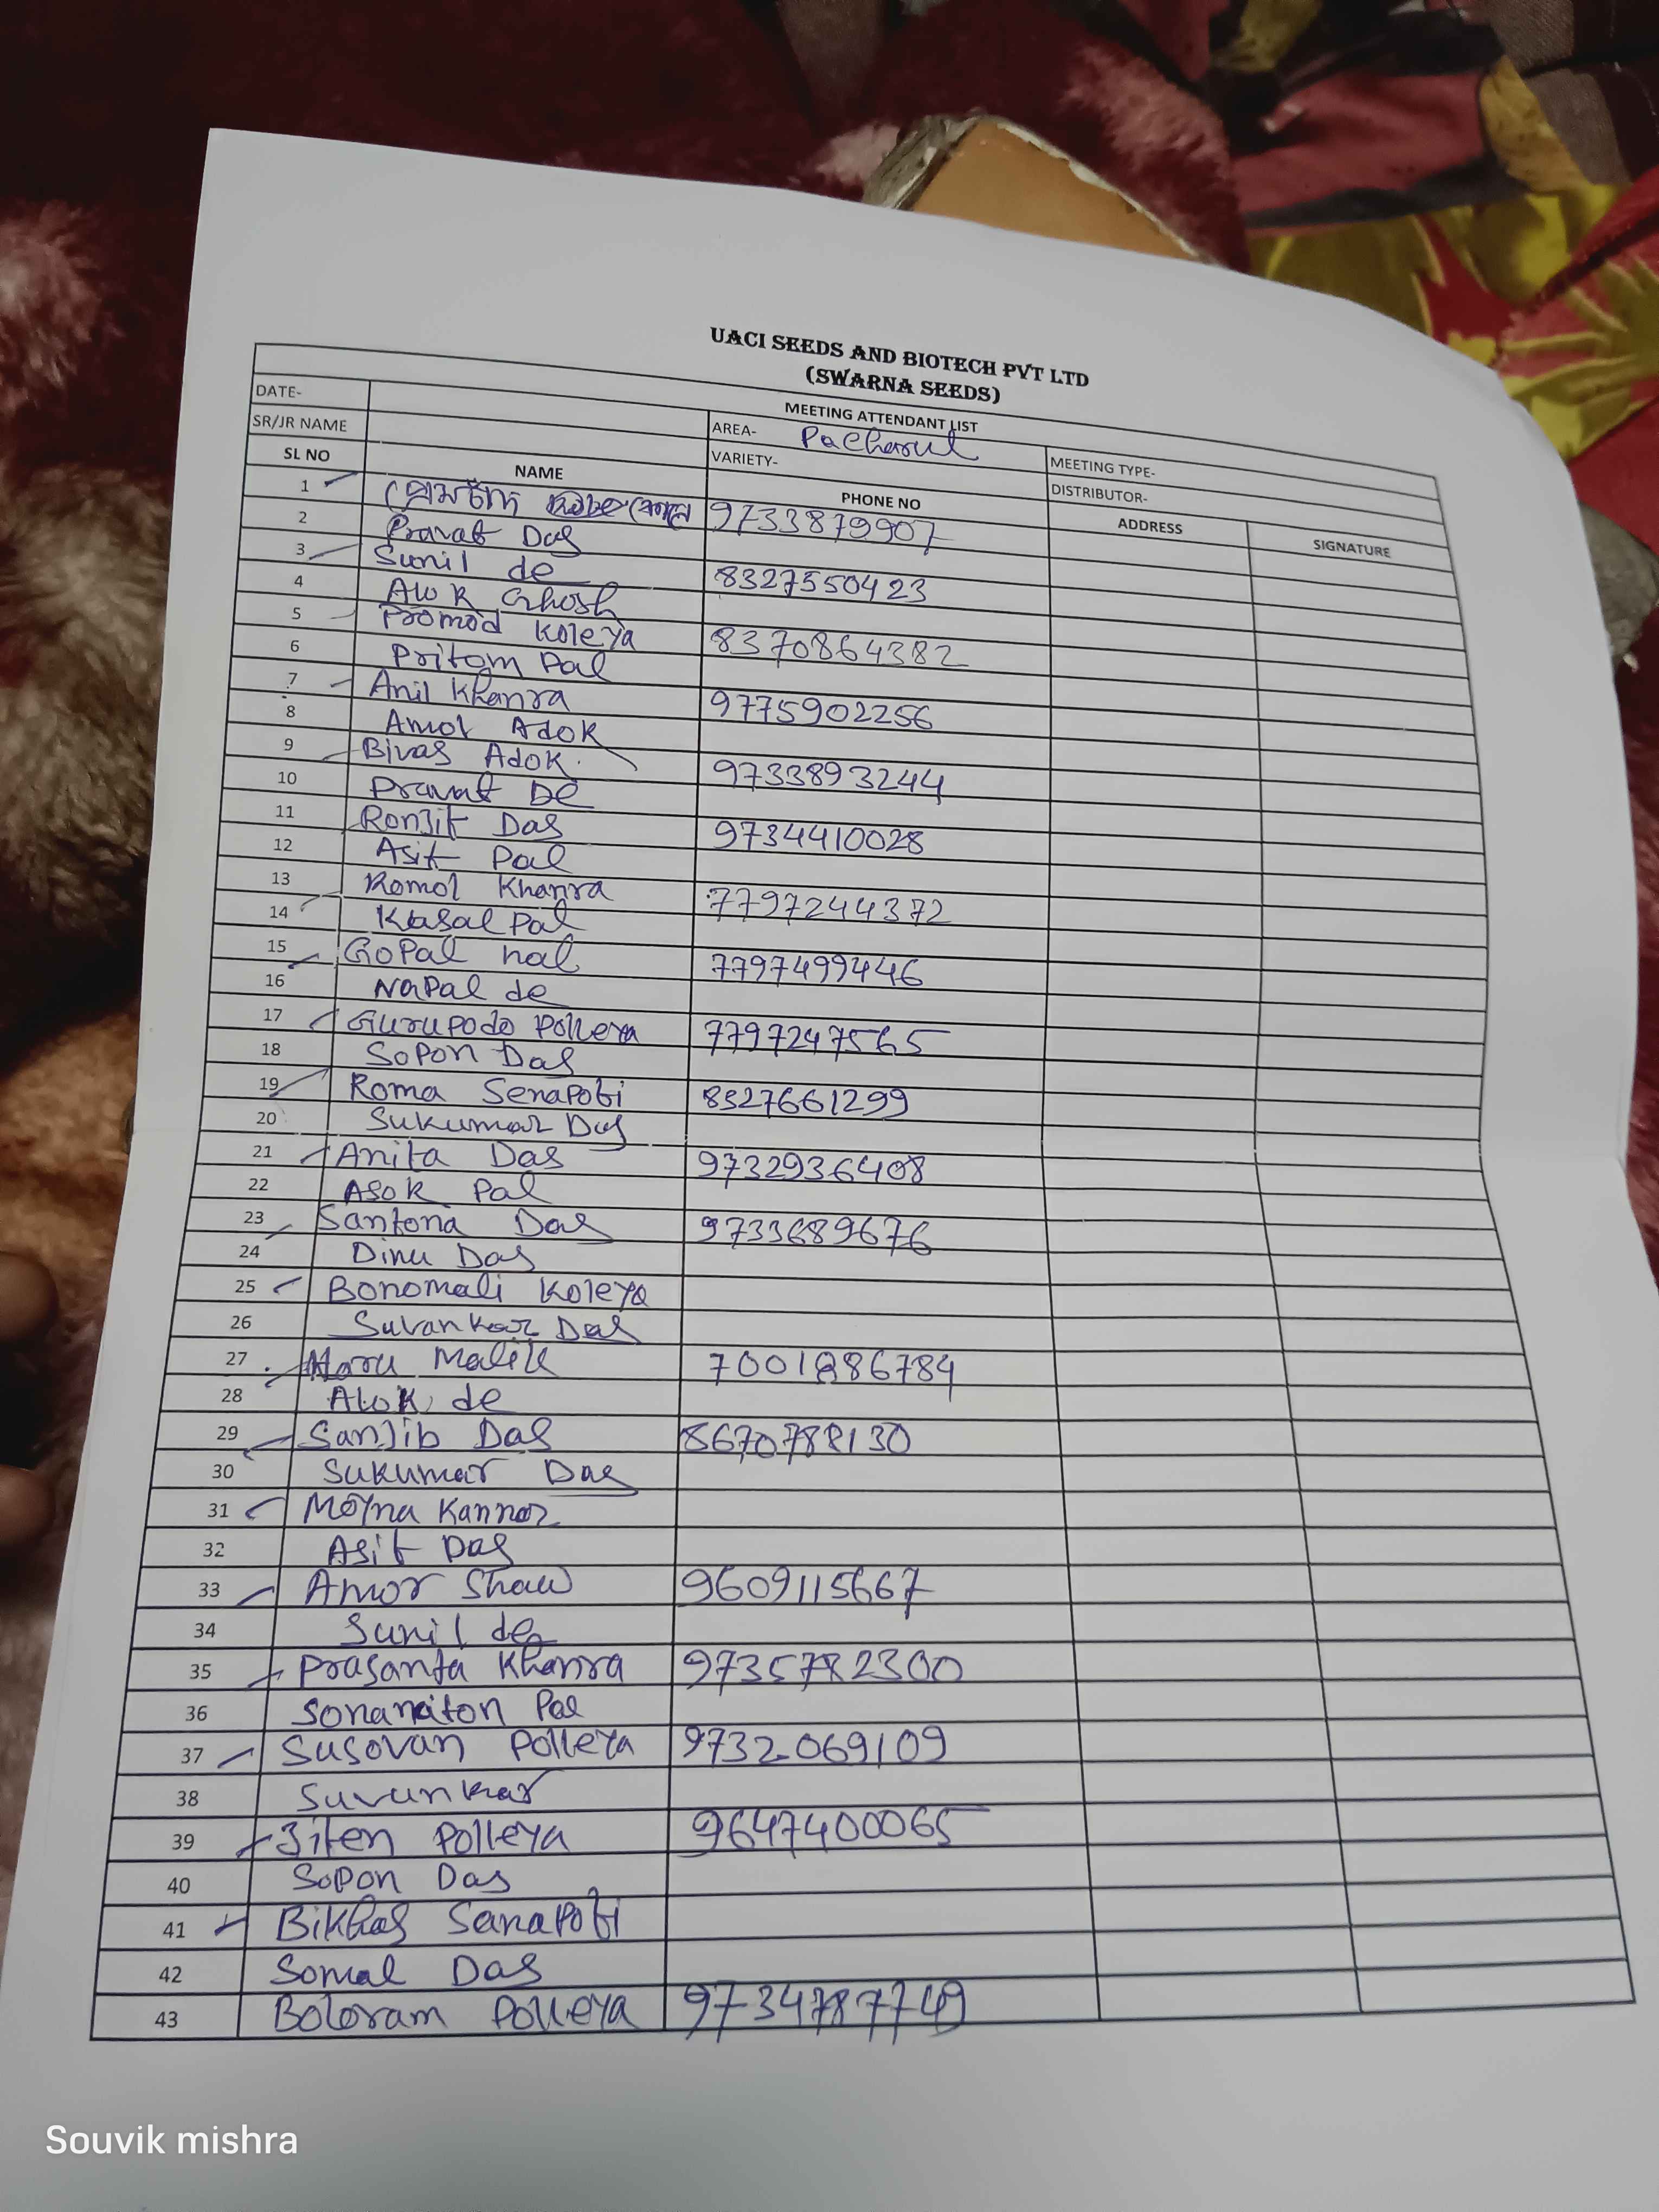 UACI SEEDS AND BIOTECH PVT LTD
(SWARNA SEEDS)
MEETING ATTENDANT LIST
DATE- AREA- Pacharul MEETING TYPE-
SR/JR NAME VARIETY- DISTRIBUTOR-
SL NO NAME PHONE NO ADDRESS SIGNATURE
1 প্রেমচাঁদ 9733879907
2 Pravat Das
3 Sunil de 8327550423
4 Alok Ghosh
5 Promod Koleya 8370864382
6 Pritom Pal
7 Anil Khanra 9775902256
8 Amol Adok
9 Bivas Adok. 9733893244
10 Pravat De
11 Ronjit Das 9734410028
12 Asit Pal
13 Komol Khanra 7797244372
14 Pal
15 GoPal 7797499446
16 NaPal de
17 Gurupodo Polleya 7797247565
18 Sopon Das
19 Roma Senapoti 8327661299
20 Sukumar Das
21 Anita Das 9732936408
22 Asok Pal
23 Santona Das 9733689676
24 Dinu Das
25 Bonomali Koleya
26 Suvankar Das
27 Haru Malik 7001886784
28 Alok de
29 Sanjib Das 8670788130
30 Sukumar Das
31 Moyna Kannar
32 Asit Das
33 Amor Shaw 9609115667
34 Sunil de
35 Prasanta Khanra 9735782300
36 Sonaraiton Pal
37 Susovan Polleya 9732069109
38 Suvunkar
39 Jiten Polleya 9647400065
40 Sopon Das
41 Bikhas Sanapoti
42 Somal Das
43 Boloram Polleya 9734787749
Souvik mishra